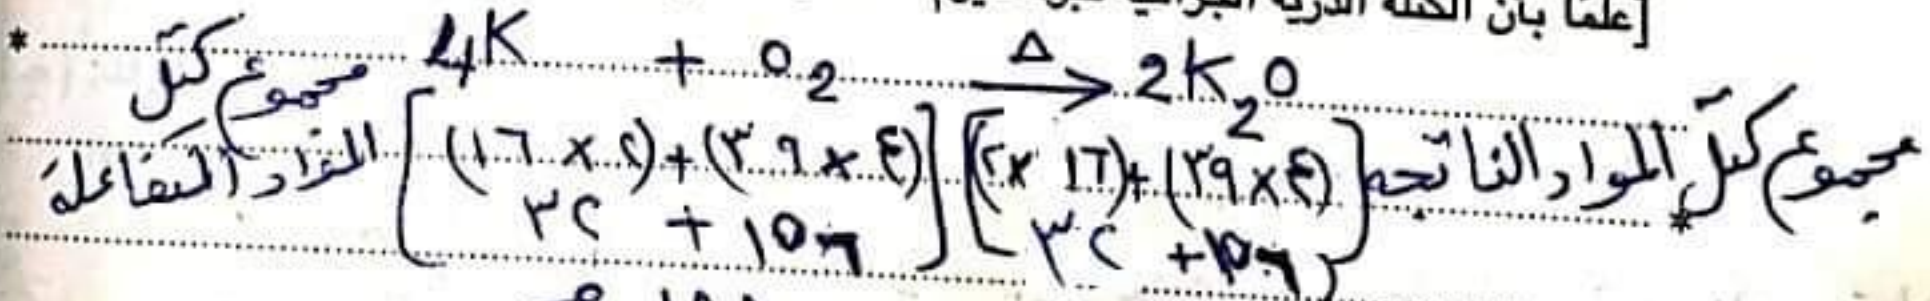 [علمًا بأن الكتلة الذرية
* 4K + O2 Δ→ 2K2O
مجموع كتل المواد المتفاعلة [(١٦ × ٢) + (٣٩ × ٤)] [(٢ × ١٦) + (٣٩ × ٤)] مجموع كتل المواد الناتجه *
٣٢ + ١٥٦ ٣٢ + ١٥٦